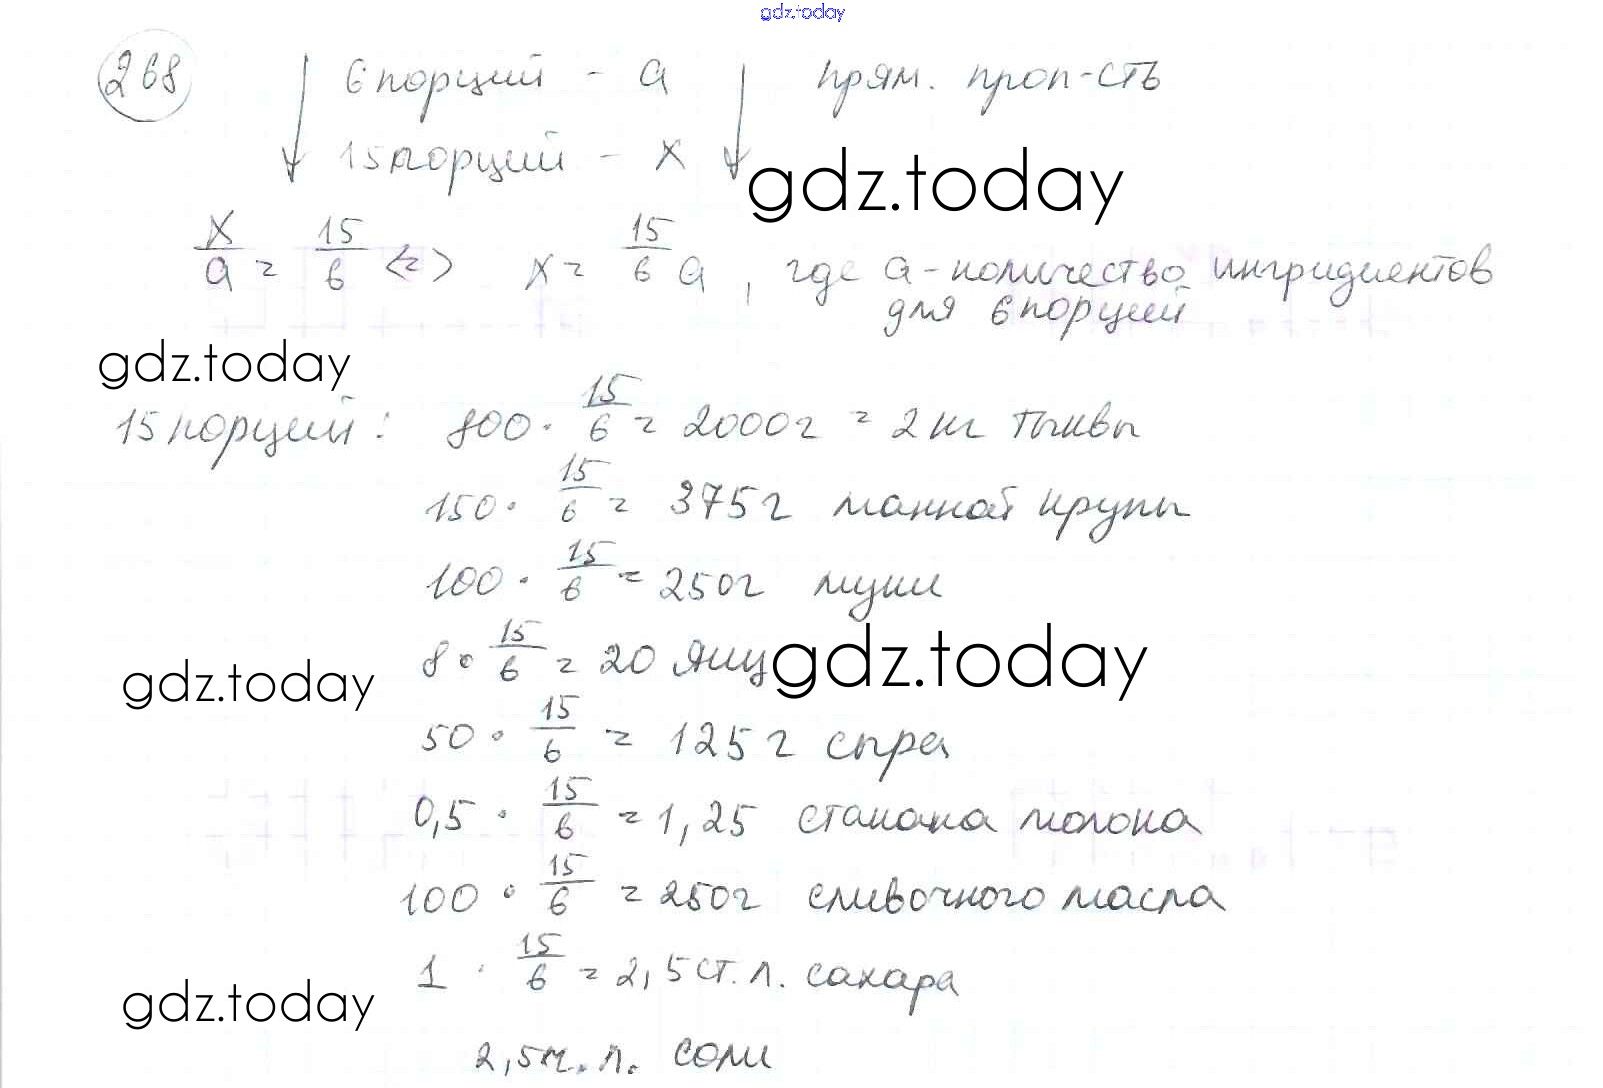 gdz.today
268 6 порций - a прям. проп-сть
15 порций - x
gdz.today
x/a = 15/6 <=> x = 15/6 a, где a - количество ингридиентов
для 6 порций
gdz.today
15 порций: 800 · 15/6 = 2000г = 2 кг тыквы
150 · 15/6 = 375 г манной крупы
100 · 15/6 = 250г муки
8 · 15/6 = 20 яиц
gdz.today
gdz.today
50 · 15/6 = 125 г сыра
0,5 · 15/6 = 1,25 стакана молока
100 · 15/6 = 250г сливочного масла
1 · 15/6 = 2,5 ст. л. сахара
gdz.today
2,5 ч. л. соли